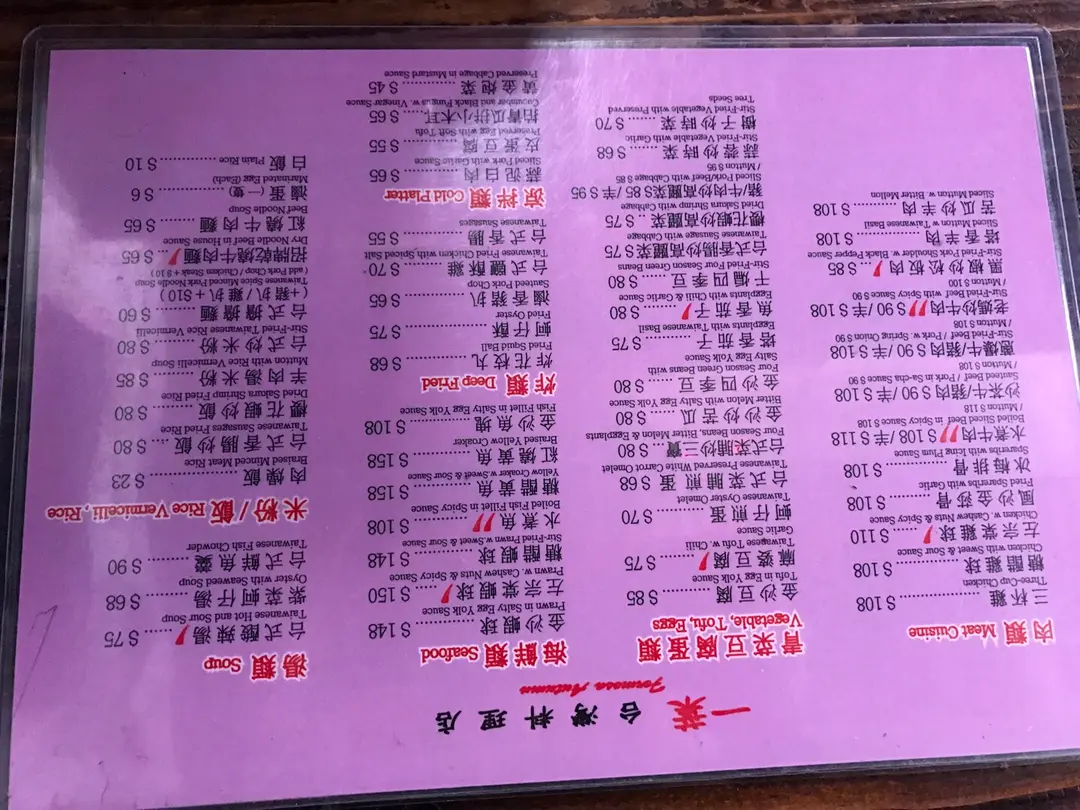 一葉 台灣料理店
Formosa Autumn
肉類 Meat Cuisine
三杯雞 ........................ $ 108
Three-Cup Chicken
糖醋雞球 ........... $ 108
Chicken with Sweet & Sour Sauce
左宗棠雞球 ...... $ 110
Chicken w. Cashew Nuts & Spicy Sauce
風沙金蒜骨 ...... $ 108
Fried Spareribs with Garlic
冰梅排骨 ........... $ 108
Spareribs with Icing Plum
水煮牛肉 $ 108 /羊 $ 118
Boiled Sliced Beef in Spicy Sauce $ 108
/ Mutton $ 118
沙茶牛/豬肉 $ 90 /羊 $ 108
Sauteed Beef / Pork in Sa-cha Sauce $ 90
/ Mutton $ 108
蔥爆牛/豬肉 $ 90 /羊 $108
Stir-Fried Beef / Pork w. Spring Onion $ 90
/ Mutton $ 108
老媽炒牛肉 $ 90 /羊 $ 100
Stir-Fried Beef with Spicy Sauce $ 90
/ Mutton $ 100
黑椒炒松板肉 .. $ 85
Stir-Fried Pork Shoulder w. Black Pepper Sauce
塔香羊肉 ........... $ 108
Sliced Mutton w. Taiwanese Basil
苦瓜炒羊肉 ...... $ 108
Sliced Mutton w. Bitter Mellon
青菜豆腐蛋類
Vegetable, Tofu, Eggs
金沙豆腐 ........... $ 85
Tofu in Egg Yolk Sauce
麻婆豆腐 ........... $ 75
Taiwanese Tofu w. Chili,
Garlic
蚵仔煎蛋 ........... $ 70
Taiwanese Oyster Omelet
台式菜脯煎蛋 $ 68
Taiwanese Preserved White Carrot Omelet
台式菜脯炒三寶 .. $ 80
Four Season Beans, Bitter Melon & Eggplants
金沙炒苦瓜 ...... $ 80
Bitter Melon with Salty Egg Yolk Sauce
金沙四季豆 ...... $ 80
Four Season Beans with
Salty Egg Yolk Sauce
塔香茄子 ........... $ 75
Eggplants with Taiwanese Basil
魚香茄子 ........... $ 80
Eggplants with Chili & Garlic
干煸四季豆 ...... $ 80
Stir-Fried Four Season Green Beans
台式香腸炒高麗菜 $ 75
Taiwanese Sausage with Cabbage
櫻花蝦炒高麗菜 .. $ 75
Dried Sakura Shrimp with Cabbage
豬/牛肉炒高麗菜$ 85 /羊 $ 95
Sliced Pork/Beef $ 85
/ Mutton $ 95
蒜蓉炒時菜 ...... $ 68
Stir-Fried Vegetable with Garlic
樹子炒時菜 ...... $ 70
Stir-Fried Vegetable with Preserved
Tree Seeds
海鮮類 Seafood
金沙蝦球 ........... $ 148
Prawn in Salty Egg Yolk Sauce
左宗棠蝦球 ...... $ 150
Prawn w. Cashew Nuts & Spicy Sauce
糖醋蝦球 ........... $ 148
Stir-Fried Prawn w.Sweet & Sour Sauce
水煮魚 ................ $ 108
Boiled Fish Fillet in Spicy Sauce
糖醋黃魚 ........... $ 158
Yellow Croaker w. Sweet & Sour Sauce
紅燒黃魚 ........... $ 158
Braised Yellow Croaker
金沙魚塊 ........... $ 108
Fish Fillet in Salty Egg Yolk Sauce
炸類 Deep Fried
炸花枝丸 ........... $ 68
Fried Squid Ball
蚵仔酥 ................ $ 75
Fried Oyster
滷香豬扒 ........... $ 65
Sauteed Pork Chop
台式鹽酥雞 ....... $ 70
Taiwanese Fried Chicken with Spiced Salt
台式香腸 ........... $ 55
Taiwanese Sausages
涼拌類 Cold Platter
蒜泥白肉 ........... $ 65
Sliced Pork with Garlic Sauce
皮蛋豆腐 ........... $ 55
Preserved Egg with Soft Tofu
拍青瓜拼小木耳 .... $ 65
Cucumber and Black Fungus w. Vinegar Sauce
黃金炮菜 ........... $ 45
Preserved Cabbage in Mustard Sauce
湯類 Soup
台式酸辣湯 ....... $ 75
Taiwanese Hot and Sour Soup
紫菜蚵仔湯 ...... $ 68
Oyster with Seaweed Soup
台式鮮魚羹 ...... $ 90
Taiwanese Fish Chowder
米粉 / 飯 Rice Vermicelli , Rice
肉燥飯 ................ $ 23
Braised Minced Meat Rice
台式香腸炒飯 ... $ 80
Taiwanese Sausages Fried Rice
櫻花蝦炒飯 ....... $ 80
Dried Sakura Shrimp Fried Rice
羊肉湯米粉 ....... $ 85
Mutton with Rice Vermicelli Soup
台式炒米粉 ....... $ 80
Stir-Fried Taiwanese Rice Vermicelli
台式擔擔麵 ....... $ 60
(+豬扒 / 雞扒 + $10 )
Taiwanese Spice Pork Minced Noodle Soup
( add Pork Chop / Chicken Steak + $ 10 )
招牌乾燒牛肉麵 ... $ 65
Dry Noodle Beef in House Sauce
紅燒牛肉麵 ....... $ 65
Beef Noodle Soup
滷蛋 (一隻) ............ $ 6
Marinated Egg (Each)
白飯 ................. $ 10
Plain Rice